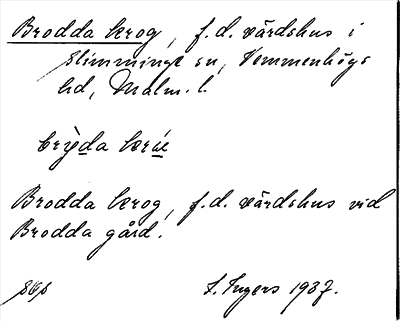 Brodda krog, f.d. värdshus i
Slimminge sn, Vemmenhögs
hd, Malm. l.
Brodda krog, f.d. värdshus vid
Brodda gård.
I. Ingers 1937.